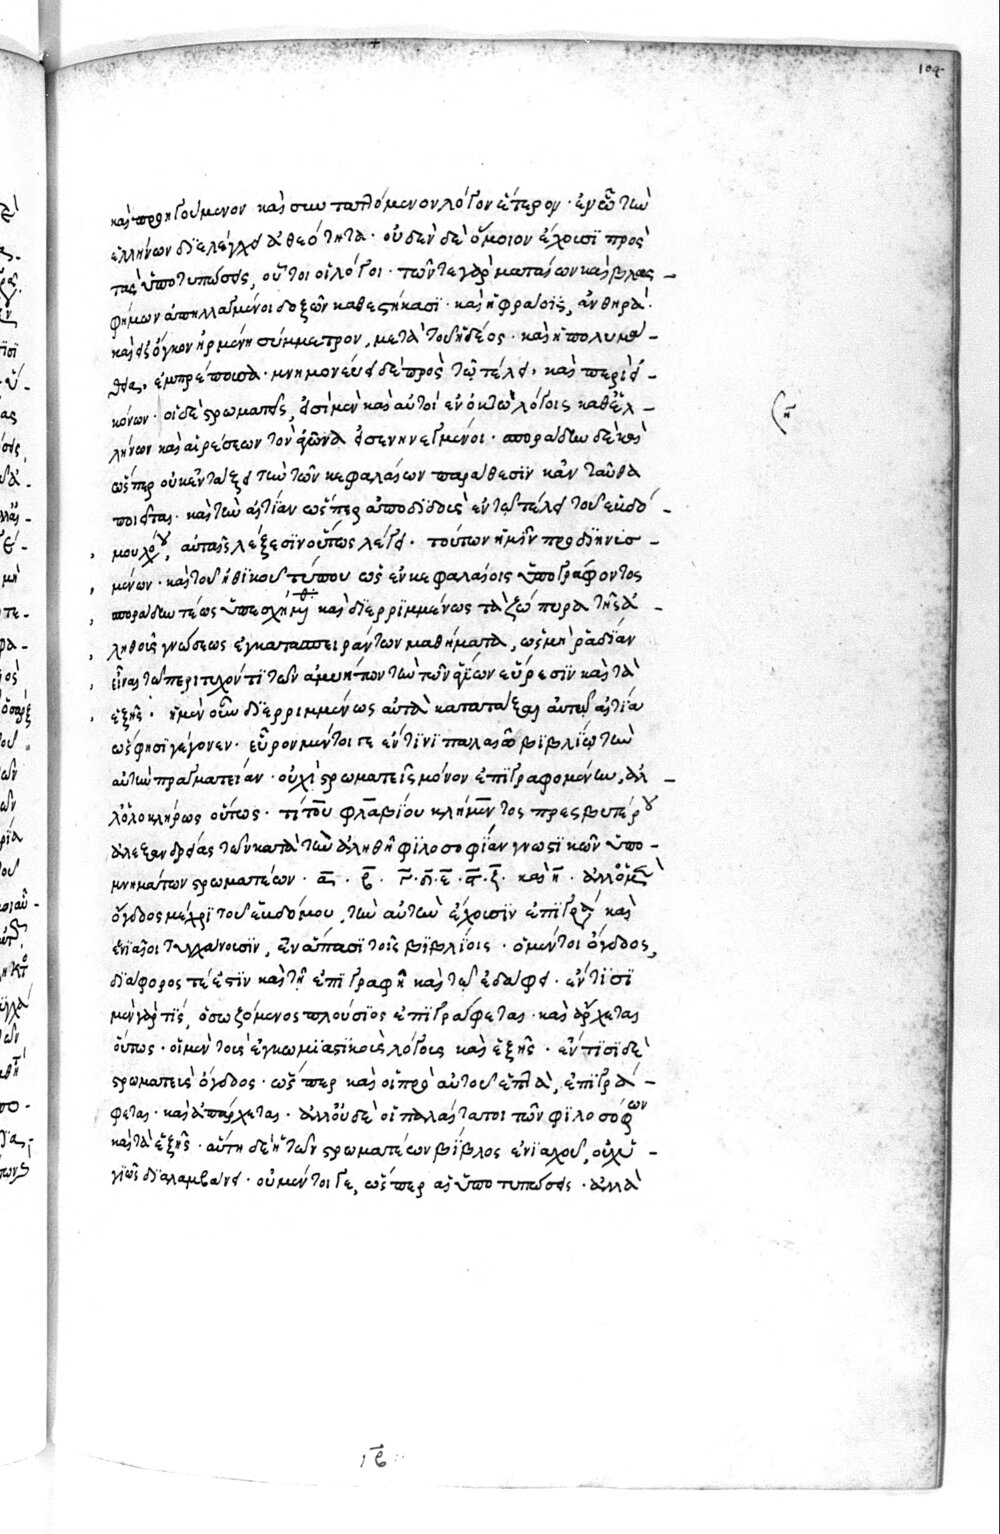 104
καὶ προηγούμενον καὶ συνταττόμενον λόγον ἕτερον · ἐν ᾧ τὴν
ἑλλήνων διελέγχει ἀθεότητα · οὐδὲν δὲ ὅμοιον ἔχουσι πρὸς
τὰς ὑποτυπώσεις, οὗτοι οἱ λόγοι · τῶν τε γὰρ ματαίων καὶ βλασ –
φήμων ἀπηλλαγμένοι δοξῶν καθεστήκασι · καὶ ἡ φράσις, ἀνθηρὰ ·
καὶ εἰς ὄγκον ἠρμένη σύμμετρον, μετὰ τοῦ ἡδέος · καὶ ἡ πολυμα –
θεία, ἐμπρέπουσα · μνημονεύει δὲ πρὸς τῷ τέλει, καὶ περὶ εἰ –
κόνων · οἱ δὲ στρωματεῖς, εἰσὶ μὲν καὶ αὐτοὶ ἐν ὀκτὼ λόγοις καθ' ἑλ –
(η
λήνων καὶ αἱρέσεων τὸν ἀγῶνα εἰσενηνεγμένοι · σποράδην δὲ καὶ
ὥσπερ οὐκ ἐν τάξει τὴν τῶν κεφαλαίων παράθεσιν κἀνταῦθα
ποιεῖται · καὶ τὴν αἰτίαν ὥσπερ ἀποδιδοὺς ἐν τῷ τέλει τοῦ ἑβδό –
μου λόγου, αὐταῖς λέξεσιν οὕτως λέγει · τούτων ἡμῖν προδιηνυσ –
μένων · καὶ τοῦ ἠθικοῦ τύπου ὡς ἐν κεφαλαίοις ὑπογραφέντος
σποράδην τέως ὑπεσχήμεθα καὶ διερριμμένως τὰ ζώπυρα τῆς ἀ –
ληθοῦς γνώσεως ἐγκατασπειράντων μαθήματα, ὡς μὴ ῥᾳδίαν
εἶναι τῷ περιτυχόντι τῶν ἀμυήτων τὴν τῶν ἁγίων εὕρεσιν καὶ τὰ
ἑξῆς · ἡ μὲν οὖν διερριμμένως αὐτὰ κατατάξαι αὐτῷ αἰτία
ὥς φησι γέγονεν · εὗρον μέντοι γε ἔν τινι παλαιῷ βιβλίῳ τὴν
αὐτὴν πραγματείαν · οὐχὶ στρωματεῖς μόνον ἐπιγραφομένην, ἀλ –
λ' ὁλοκλήρως οὕτως · τίτου φλαβίου κλήμεντος πρεσβυτέρου
ἀλεξανδρείας τῶν κατὰ τὴν ἀληθῆ φιλοσοφίαν γνωστικῶν ὑπο –
μνημάτων στρωματέων · α · β · γ · δ · ε · ϛ · ζ · καὶ η · ἀλλ' ὁ μὲν
ὄγδοος μέχρι τοῦ ἑβδόμου, τὴν αὐτὴν ἔχουσιν ἐπιγραφὴν καὶ
ἑνιαῖοι τυγχάνουσιν, ἐν ἅπασι τοῖς βιβλίοις · ὁ μέντοι ὄγδοος,
διάφορος τέ ἐστιν καὶ τῇ ἐπιγραφῇ καὶ τῷ ἐδάφει · ἔν τισι
μὲν γὰρ τίς, ὁ σωζόμενος πλούσιος ἐπιγράφεται · καὶ ἄρχεται
οὕτως · οἱ μὲν τοὺς ἐγκωμιαστικοὺς λόγους καὶ ἑξῆς · ἔν τισι δὲ
στρωματεὺς ὄγδοος · ὥσπερ καὶ οἱ πρὸ αὐτοῦ ἑπτὰ, ἐπιγρά –
φεται · καὶ ἀπάρχεται · ἀλλ' οὐδὲ οἱ παλαίτατοι τῶν φιλοσόφων
καὶ τὰ ἑξῆς · αὕτη δὲ ἡ τῶν στρωματέων βίβλος ἐνιαχοῦ, οὐχ ὑ –
γιῶς διαλαμβάνει · οὐ μέντοι γε, ὥσπερ αἱ ὑποτυπώσεις · ἀλλὰ
ιβ